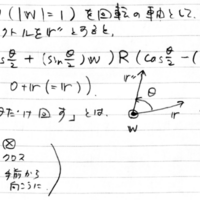 (|w|=1) を回転の軸として.
クトルを r'' とすると,
s θ/2 + (sin θ/2) w) R (cos θ/2 - (
0 + r (= r)).
だけ回す」とは.
r'' θ
r
w
⊗
クロス
手前から
向こうに.